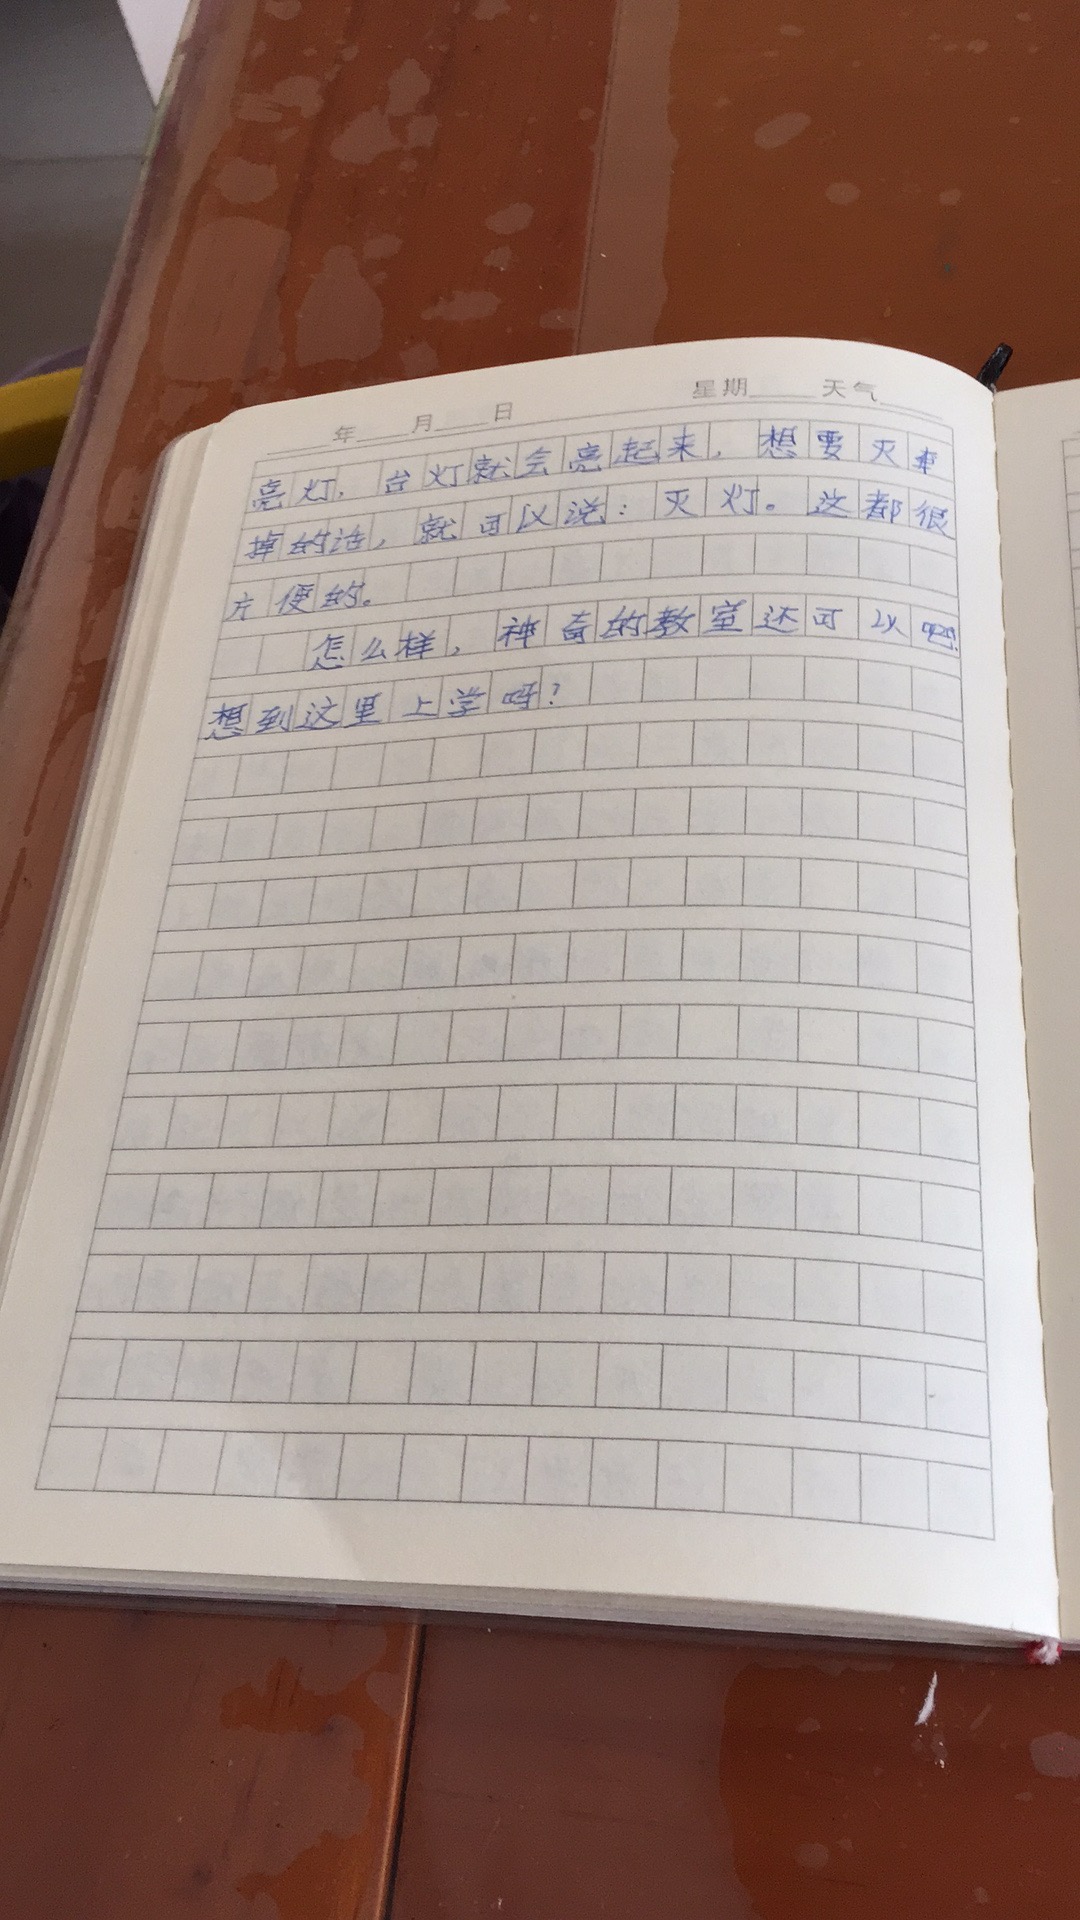 年 月 日 星期 天气
亮灯，台灯就会亮起来，想要灭
掉的话，就可以说：灭灯。这都很
方便的。
怎么样，神奇的教室还可以吧，
想到这里上学吗？